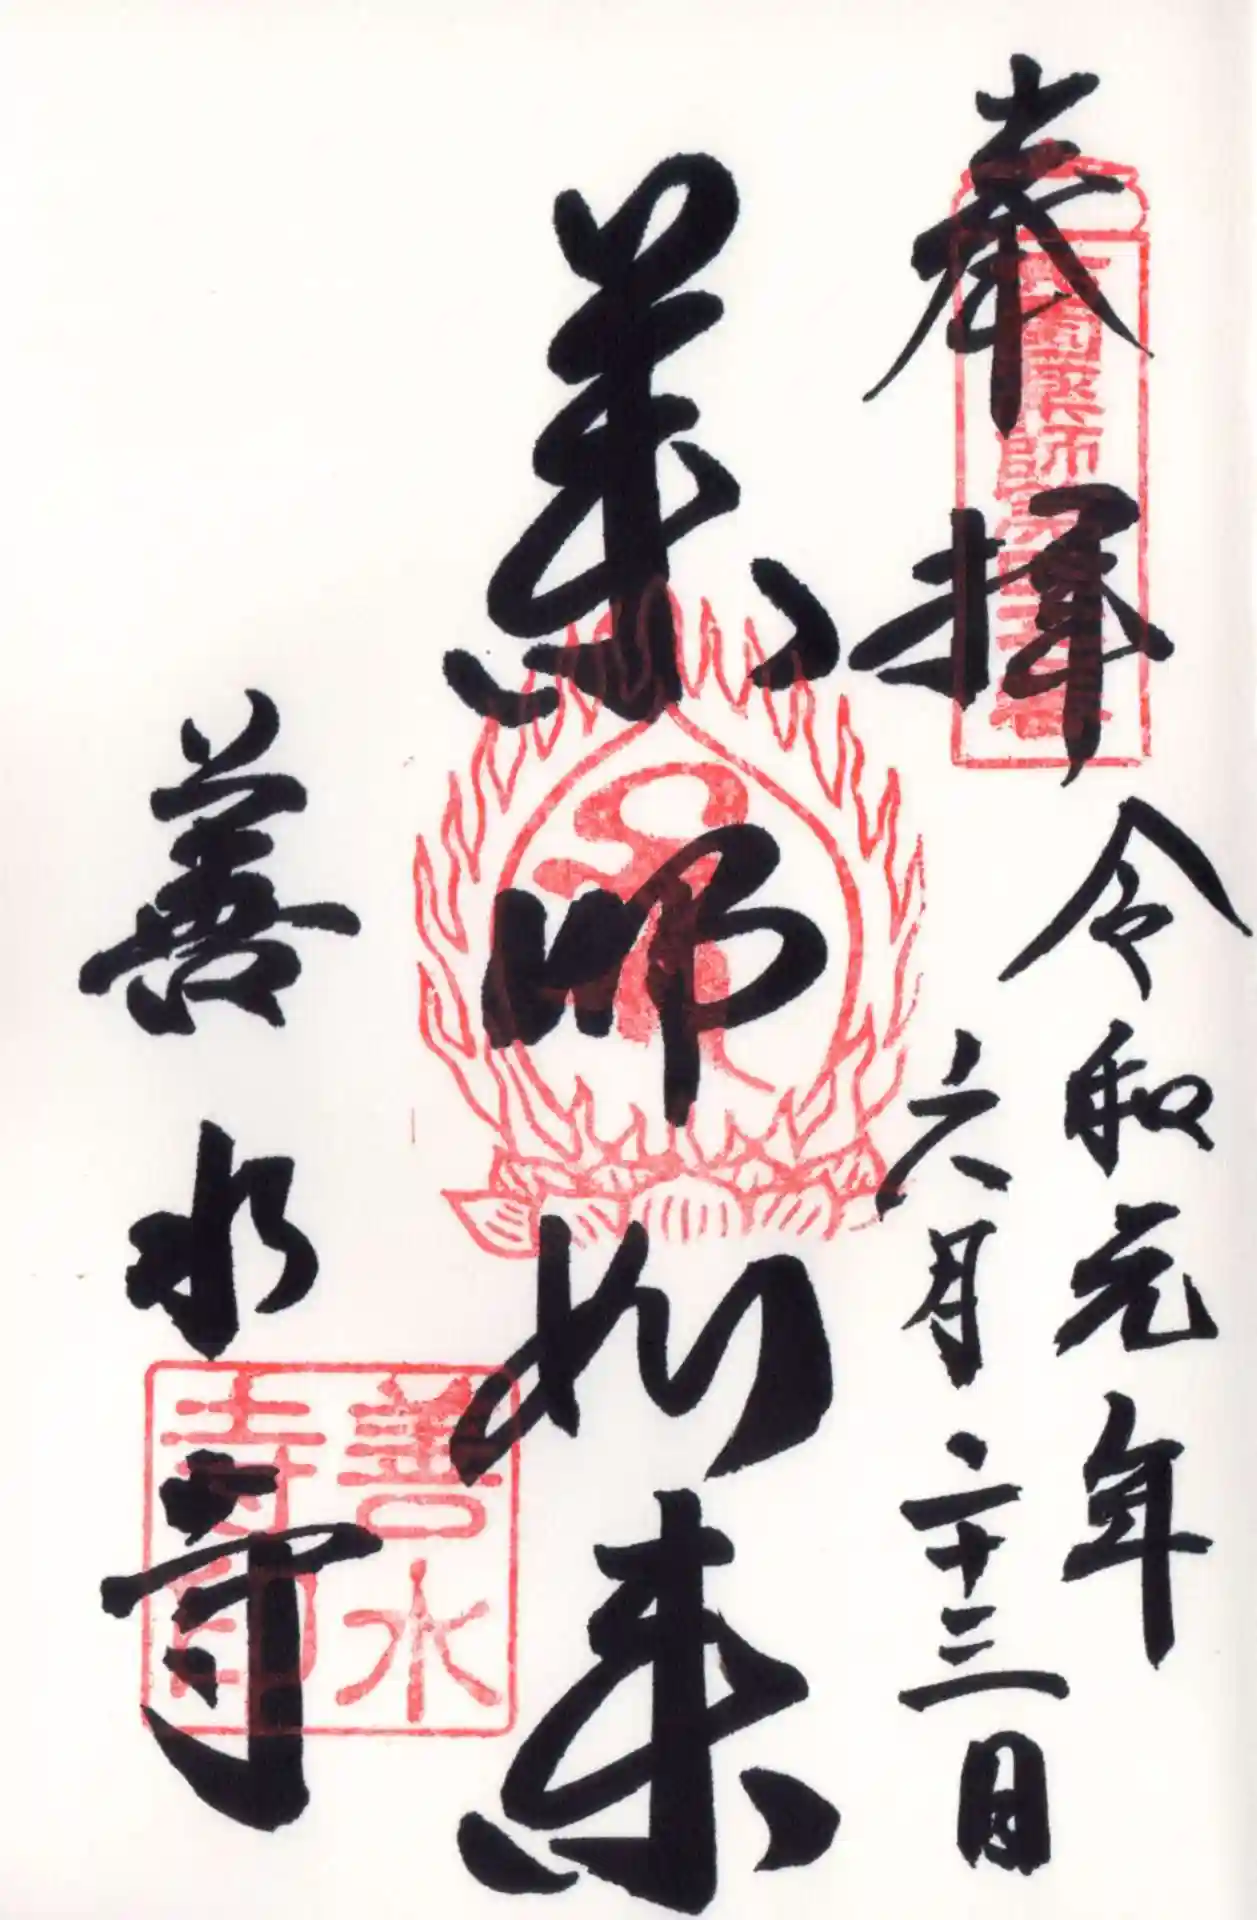 奉拝
令和元年
六月二十三日
薬師如来
善水寺
善水
寺印